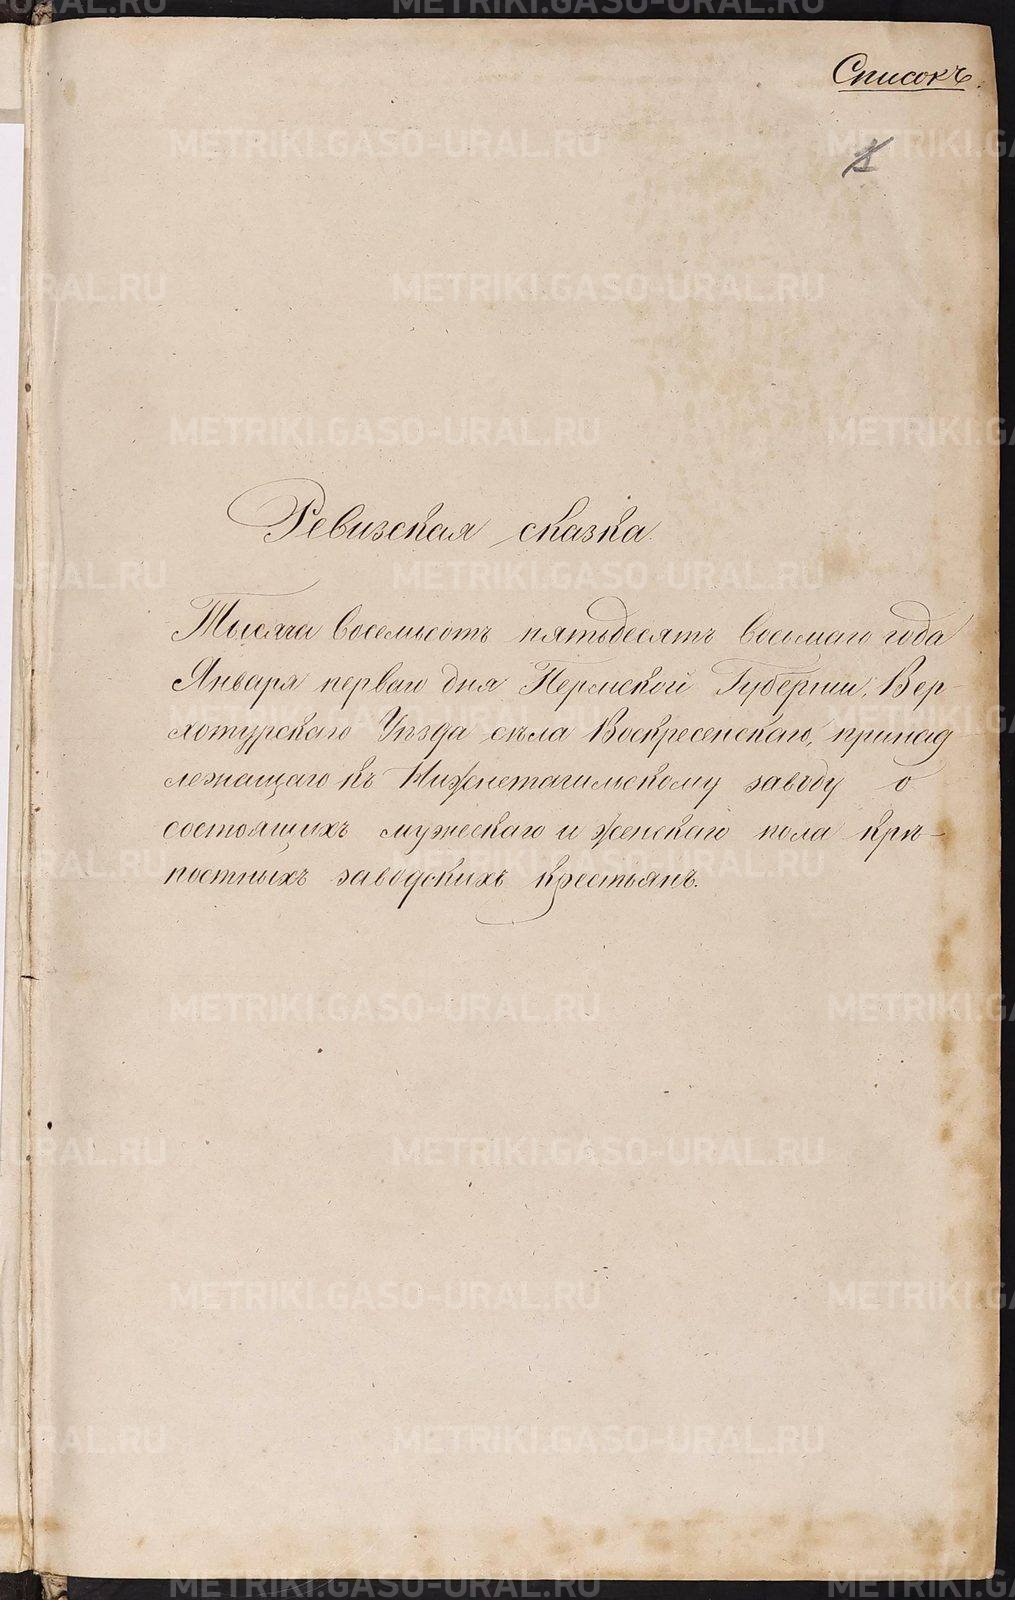 Списокъ
Ревизская сказка
Тысяча восемьсотъ пятьдесятъ восьмаго года
Января перваго дня Пермской Губерніи, Вер-
хотурскаго Уѣзда села Воскресенскаго, принад
лежащаго къ Нижнетагильскому заводу о
состоящихъ мужескаго и женскаго пола крѣ-
постныхъ заводскихъ крестьянъ.
METRIKI.GASO-URAL.RU